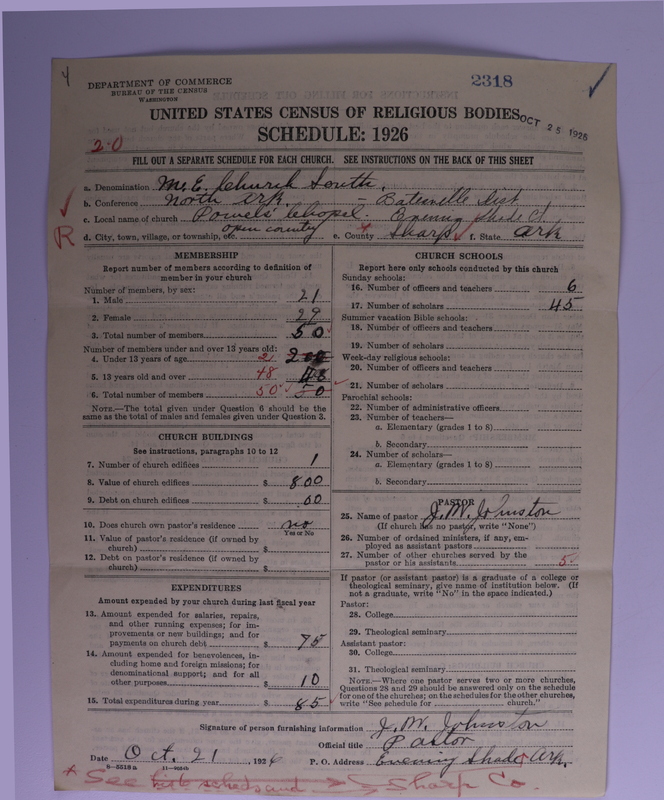 4
DEPARTMENT OF COMMERCE
BUREAU OF THE CENSUS
WASHINGTON
2318
UNITED STATES CENSUS OF RELIGIOUS BODIES
OCT 25 1926
SCHEDULE: 1926
20
FILL OUT A SEPARATE SCHEDULE FOR EACH CHURCH. SEE INSTRUCTIONS ON THE BACK OF THIS SHEET
a. Denomination M. E. Church South.
b. Conference North Ark. – Batesville Dist
c. Local name of church Powels Chapel. Evening Shade Ct.
d. City, town, village, or township, etc. open country e. County Sharp f. State Ark
R
MEMBERSHIP
Report number of members according to definition of member in your church
Number of members, by sex:
1. Male 21
2. Female 29
3. Total number of members 50
Number of members under and over 13 years old:
4. Under 13 years of age 2 2
5. 13 years old and over 48 48
6. Total number of members 50 50
NOTE.—The total given under Question 6 should be the same as the total of males and females given under Question 3.
CHURCH BUILDINGS
See instructions, paragraphs 10 to 12
7. Number of church edifices 1
8. Value of church edifices $ 800
9. Debt on church edifices $ 00
10. Does church own pastor's residence no
Yes or No
11. Value of pastor's residence (if owned by church) $
12. Debt on pastor's residence (if owned by church) $
EXPENDITURES
Amount expended by your church during last fiscal year
13. Amount expended for salaries, repairs, and other running expenses; for improvements or new buildings; and for payments on church debt $ 75
14. Amount expended for benevolences, including home and foreign missions; for denominational support; and for all other purposes $ 10
15. Total expenditures during year $ 85
CHURCH SCHOOLS
Report here only schools conducted by this church
Sunday schools:
16. Number of officers and teachers 6
17. Number of scholars 45
Summer vacation Bible schools:
18. Number of officers and teachers
19. Number of scholars
Week-day religious schools:
20. Number of officers and teachers
21. Number of scholars
Parochial schools:
22. Number of administrative officers
23. Number of teachers—
a. Elementary (grades 1 to 8)
b. Secondary
24. Number of scholars—
a. Elementary (grades 1 to 8)
b. Secondary
PASTOR
25. Name of pastor J. W. Johnston
(If church has no pastor, write "None")
26. Number of ordained ministers, if any, employed as assistant pastors
27. Number of other churches served by the pastor or his assistants 5
If pastor (or assistant pastor) is a graduate of a college or theological seminary, give name of institution below. (If not a graduate, write "No" in the space indicated.)
Pastor:
28. College
29. Theological seminary
Assistant pastor:
30. College
31. Theological seminary
NOTE.—Where one pastor serves two or more churches, Questions 28 and 29 should be answered only on the schedule for one of the churches; on the schedules for the other churches, write "See schedule for church."
Signature of person furnishing information J. W. Johnston
Official title Pastor
Date Oct. 21, 1926 P. O. Address Evening Shade Ark.
8—5518a 11—9034b
* See Sharp Co.